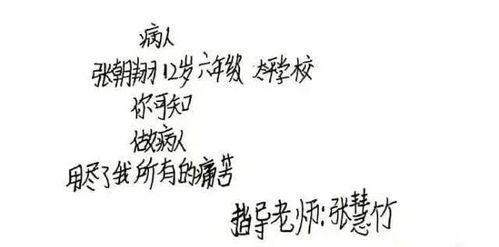 病人
张朝翔 12岁 六年级 太平学校
你可知
做病人
用尽了我所有的痛苦
指导老师:张慧竹